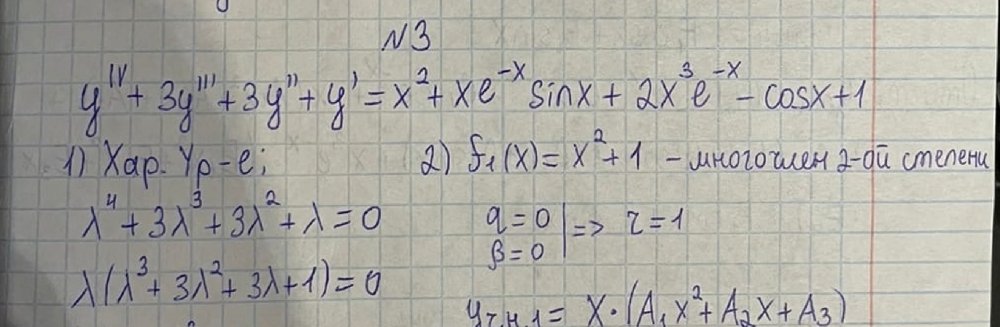 N3
y^IV + 3y''' + 3y'' + y' = x² + xe^-x sinx + 2x³e^-x - cosx + 1
1) Хар. Ур-е;
λ⁴ + 3λ³ + 3λ² + λ = 0
λ(λ³ + 3λ² + 3λ + 1) = 0
2) f₁(x) = x² + 1 - многочлен 2-ой степени
α = 0
β = 0 | => r = 1
yт.н.1 = x·(A₁x² + A₂x + A₃)